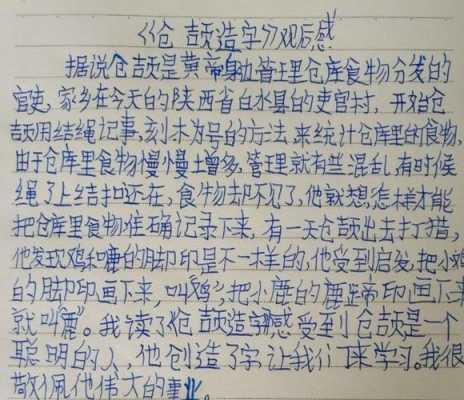 《仓颉造字》观后感
据说仓颉是黄帝身边管理仓库食物分发的
官吏,家乡在今天的陕西省白水县的吏官村,开始仓
颉用结绳记事,刻木为号的方法来统计仓库里的食物,
由于仓库里食物慢慢土增多,管理就有些混乱,有时候
绳子上结扣还在,食物却不见了,他就想,怎样才能
把仓库里食物准确记录下来,有一天仓颉出去打猎,
他发现鸡和鹿的脚印是不一样的,他受到启发,把小鸡
的脚印画下来,叫"鸡",把小鹿的蹄印画下来
就叫"鹿"。我读了《仓颉造字》感受到仓颉是一个
聪明的人,他创造了字让我们来学习。我很
敬佩他伟大的事业。